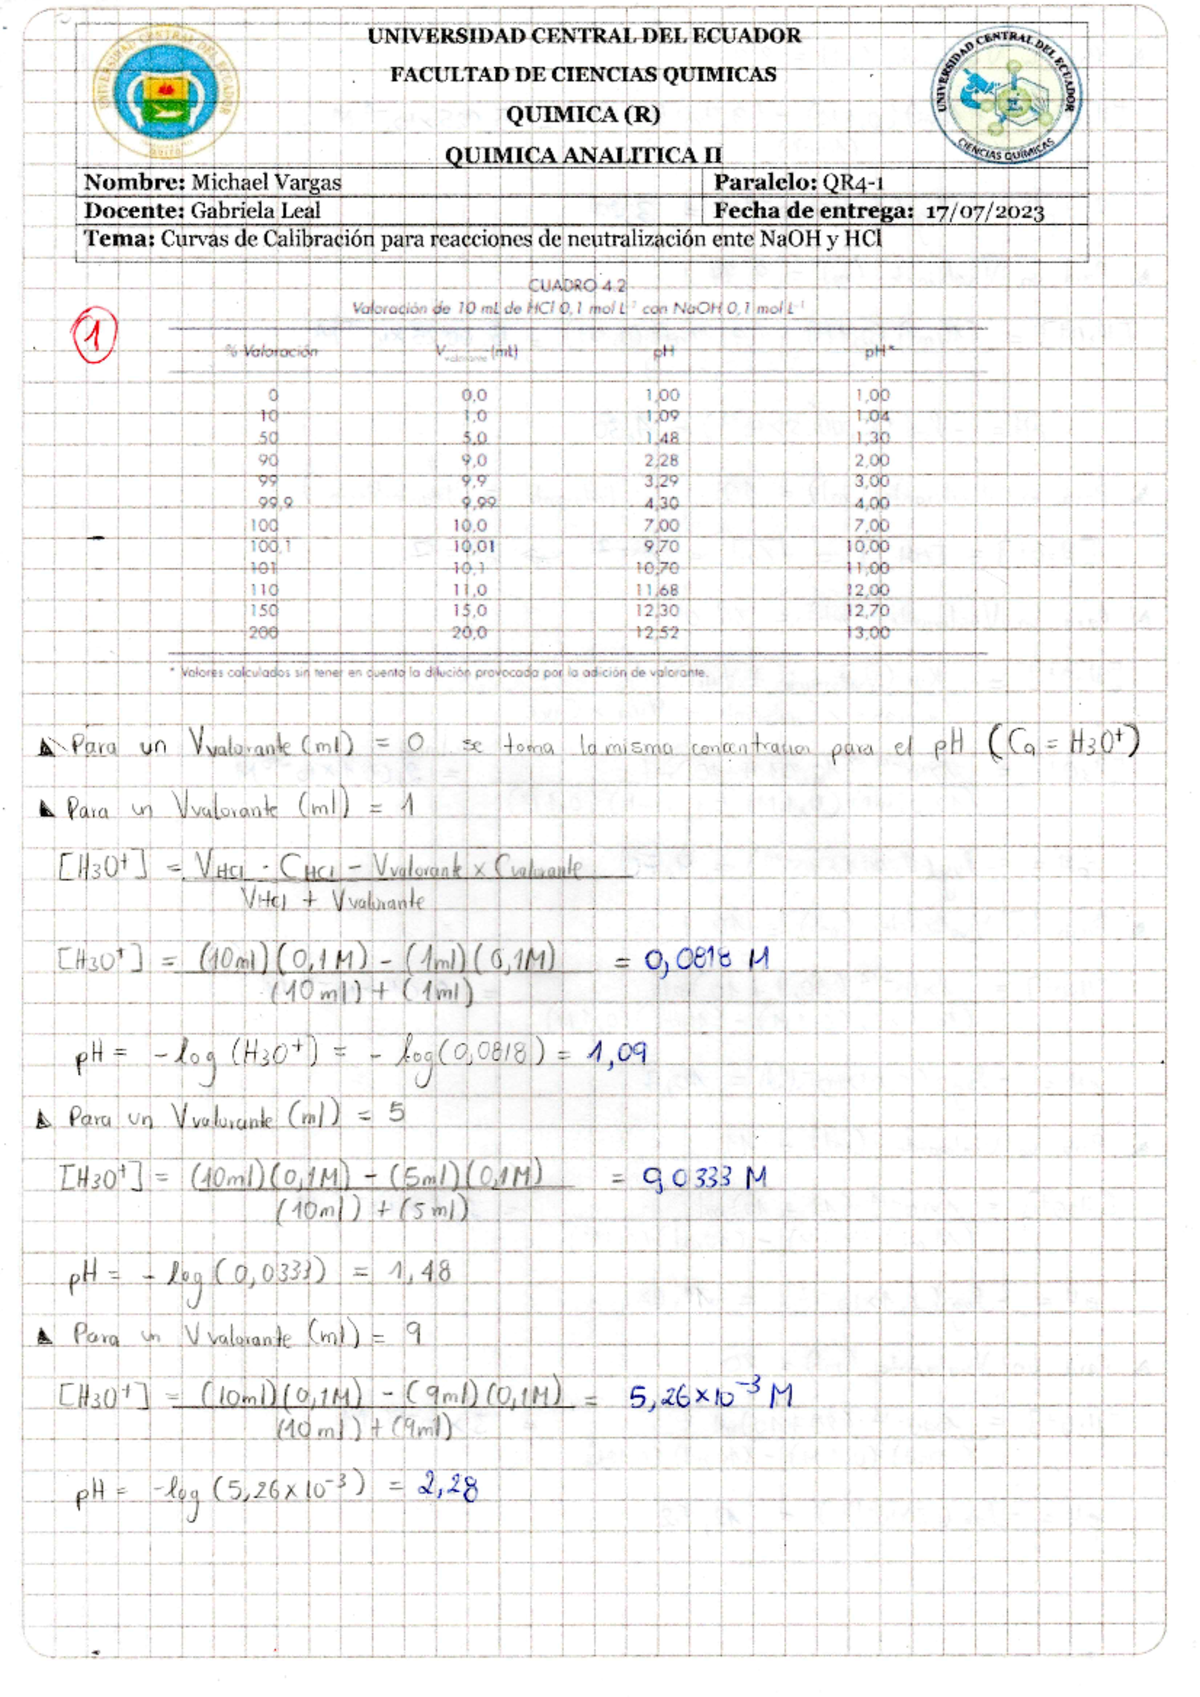 UNIVERSIDAD CENTRAL DEL ECUADOR
FACULTAD DE CIENCIAS QUIMICAS
QUIMICA (R)
QUIMICA ANALITICA II
UNIVERSIDAD CENTRAL DEL ECUADOR
CIENCIAS QUÍMICAS
Nombre: Michael Vargas Paralelo: QR4-1
Docente: Gabriela Leal Fecha de entrega: 17/07/2023
Tema: Curvas de Calibración para reacciones de neutralización ente NaOH y HCl
CUADRO 4.2
Valoración de 10 mL de HCl 0,1 mol L⁻¹ con NaOH 0,1 mol L⁻¹
1
% Valoración Vvalorante (mL) pH pH*
0 0,0 1,00 1,00
10 1,0 1,09 1,04
50 5,0 1,48 1,30
90 9,0 2,28 2,00
99 9,9 3,29 3,00
99,9 9,99 4,30 4,00
100 10,0 7,00 7,00
100,1 10,01 9,70 10,00
101 10,1 10,70 11,00
110 11,0 11,68 12,00
150 15,0 12,30 12,70
200 20,0 12,52 13,00
* Valores calculados sin tener en cuenta la dilución provocada por la adición de valorante.
Para un Vvalorante (ml) = 0 se toma la misma concentracion para el pH (Ca = H3O⁺)
Para un Vvalorante (ml) = 1
[H3O⁺] = VHCl · CHCl - Vvalorante x Cvalorante
VHCl + Vvalorante
[H3O⁺] = (10ml)(0,1M) - (1ml)(0,1M) = 0,0818 M
(10ml) + (1ml)
pH = -log (H3O⁺) = - log(0,0818) = 1,09
Para un Vvalorante (ml) = 5
[H3O⁺] = (10ml)(0,1M) - (5ml)(0,1M) = 0,0333 M
(10ml) + (5ml)
pH = - log (0,0333) = 1,48
Para un Vvalorante (ml) = 9
[H3O⁺] = (10ml)(0,1M) - (9ml)(0,1M) = 5,26x10⁻³ M
(10ml) + (9ml)
pH = -log (5,26x10⁻³) = 2,28